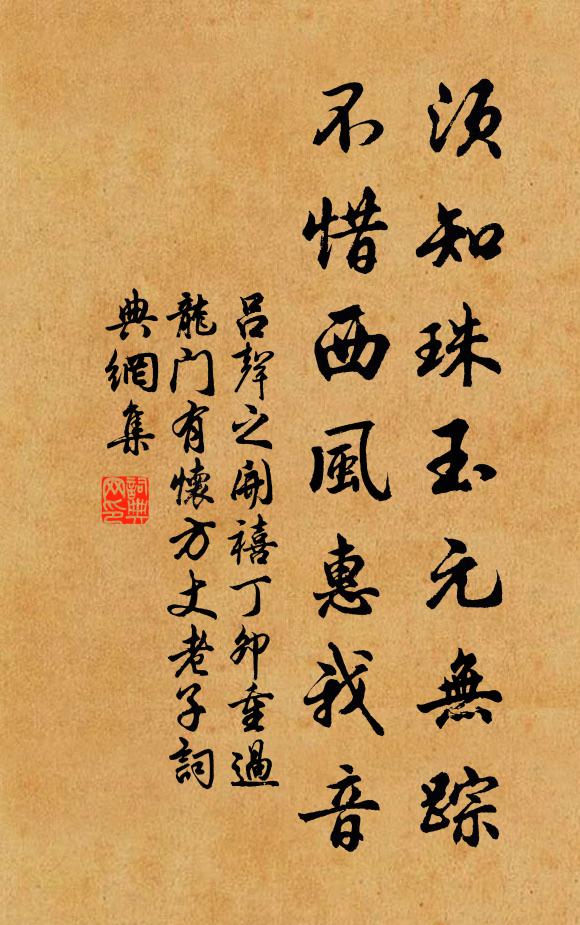 須知珠玉元無踪
不惜西風惠我音
呂聲之開禧丁卯重過
龍门有懷方丈老子詞
典網集
詞典网印